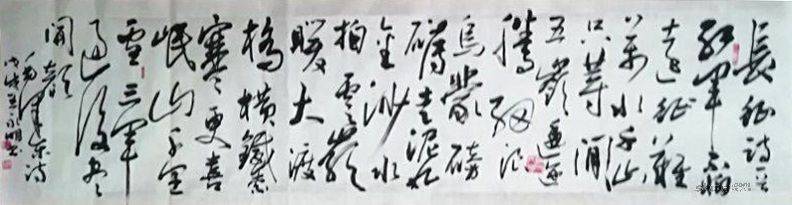 長征詩
紅軍不怕
遠征難
萬水千山
只等閒
五嶺逶迤
騰細浪
烏蒙磅
礴走泥丸
金沙水
拍雲崖
暖大渡
橋橫鐵索
寒更喜
岷山千里
雪三軍
過後盡
開顏
毛澤東詩
戊戌